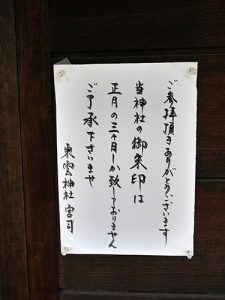 ご参拝頂きありがとうございます
当神社の御朱印は
正月の三ヶ日しか致しておりません
ご了承下さいませ
東雲神社宮司